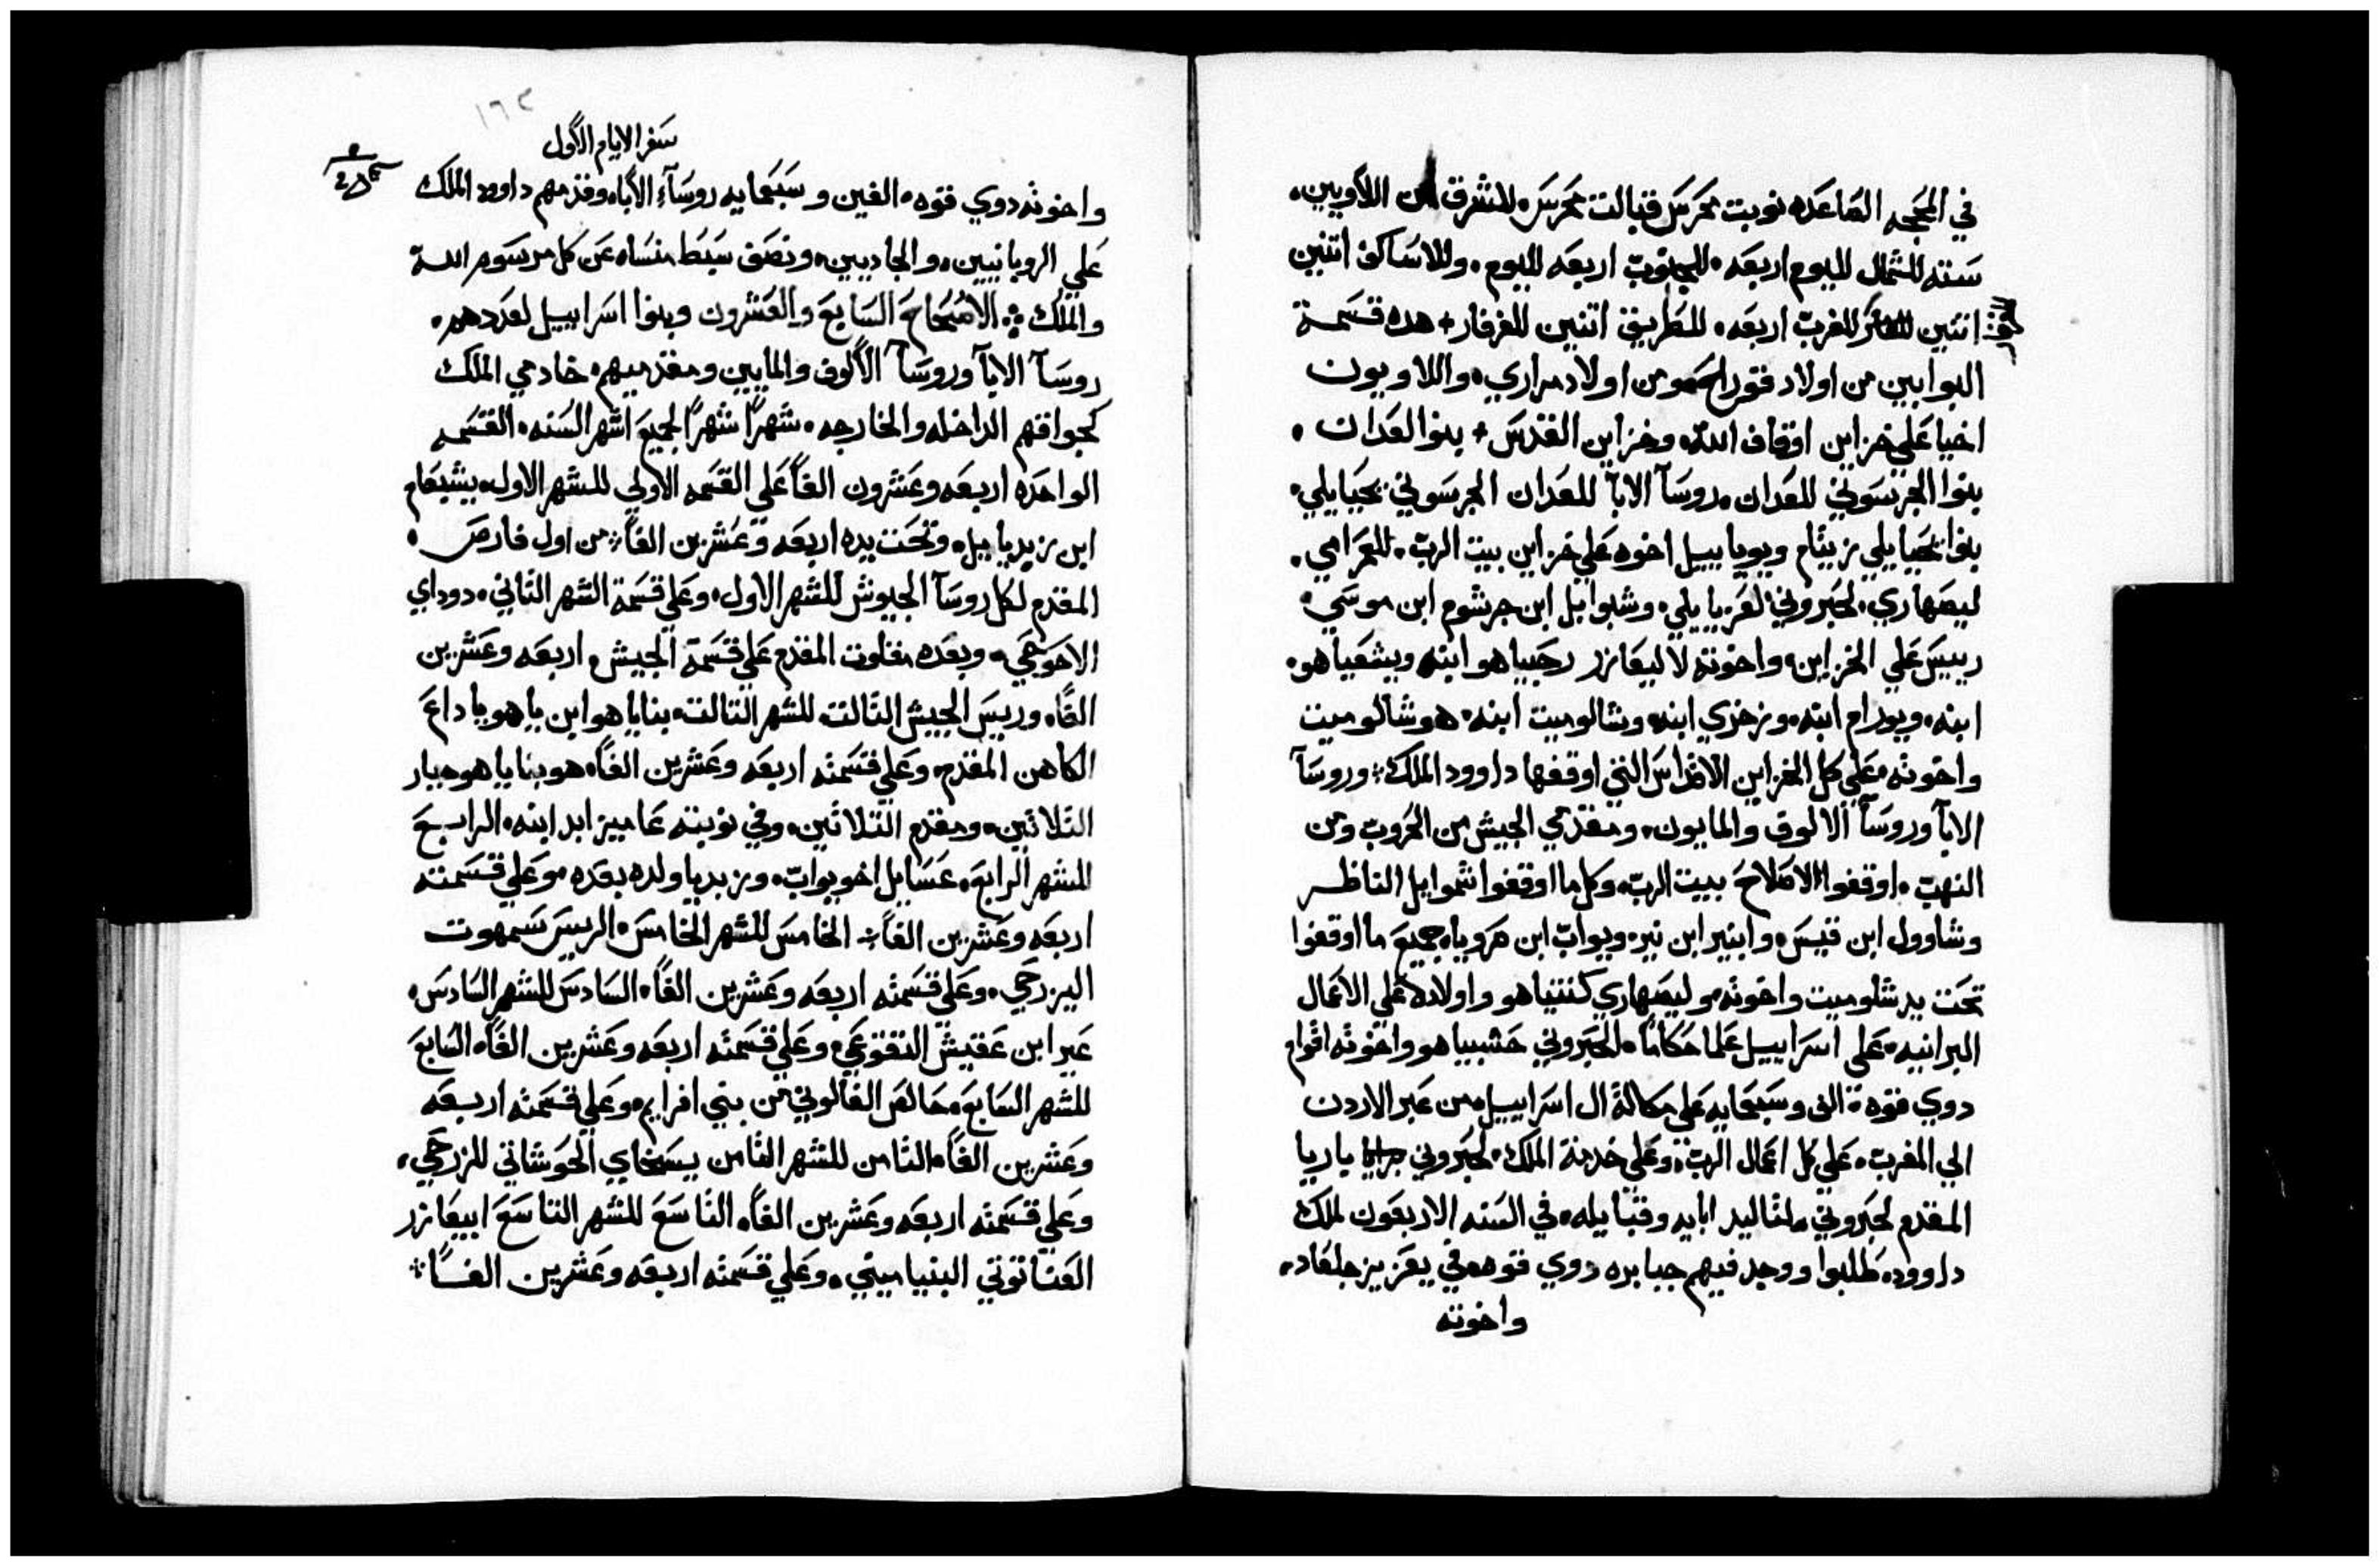 في المحجه الصاعده نوبت محرس قبالت محرس للشرق من اللاويين
سته للشمال لليوم اربعه للجنوب اربعه لليوم وللاساكف اتنين
اتنين للغرب اربعه للطريق اتنين للفرفار هده قسمة
البوابين من اولاد قورح ومن اولاد مراري واللاويون
اخيا علي خزاين اوقاف الله وخزاين القدس بنوا لعدان
بنوا الجرسوني للعدان روسآ الابآ للعدان الجرسوني يحيايلي
بنوا يحيايلي زيتام ويوياييل اخوه علي خزاين بيت الرب للعمرامي
ليصهاري لحبروني لعزيايلي وشبوايل ابن جرشوم ابن موسي
رييس علي الخزاين واخوته لاليعازر رحبياهو ابنه ويشعياهو
ابنه ويورام ابنه وزخري ابنه وشالوميت ابنه هو شالوميت
واخوته علي كل الخزاين الاقداس التي اوقفها داوود الملك وروسآ
الابآ وروسآ الالوف والمايون ومقدمي الجيش من الحروب ومن
النهب اوقفوا لاصلاح ببيت الرب وكل ما اوقفوا شموايل الناظر
وشاوول ابن قيس وابنير ابن نير ويواب ابن صرويا جميع ما اوقفوا
تحت يد شلوميت واخوته وليصهاري كننياهو واولاده علي الاعمال
البرانيه علي اسراييل علما حكاما لحبروني حشبياهو واخوته اقوام
دوي قوه الف وسبعمايه علي مكالة ال اسراييل من عبر الاردن
الي المغرب علي كل اعمال الرب وعلي خدمة الملك لحبروني ياريا
المقدم لحبروني لتاليد ابايه وقبايله في السنه الاربعون لملك
داوود طلبوا ووجد فيهم جبابره دوي قوه في يعزيز جلعاد
واخوته
١٦٢
سفر الايام الاول
واخوته دوي قوه الفين وسبعمايه روسآء الاباء وقدمهم داود الملك
علي الروبانيين والجاديين ونصف سبط منساه عن كل مرسوم الله
والملك الاصحاح السابع والعشرون وبنوا اسراييل لعددهم
روسآ الابآ وروسآ الالوف والمايين ومقدميهم خادمي الملك
كجوافهم الداخله والخارجه شهرا شهرا لجميع اشهر السنه القسمه
الواحده اربعه وعشرون الفا علي القسمه الاولي للشهر الاول يشبعام
ابن زبدياييل وتحت يده اربعه وعشرين الفا من اول فارص
المقدم لكل روسآ الجيوش للشهر الاول وعلي قسمة الشهر التاني دوداي
الاحوحي وبعده مقلوت المقدم علي قسمة الجيش اربعه وعشرين
الفا وريس الجيش التالت للشهر التالت بناياهو ابن ياهوياداع
الكاهن المقدم وعلي قسمته اربعه وعشرين الفا هو بناياهو جبار
التلاتين ومقدم التلاتين وفي نوبته عاميزابد ابنه الرابع
للشهر الرابع عسايل اخو يواب وزبديا ولده بعده وعلي قسمته
اربعه وعشرين الفا الخامس للشهر الخامس الريس سمهوت
اليزرحي وعلي قسمته اربعه وعشرين الفا السادس للشهر السادس
عير ابن عقيش التقوعي وعلي قسمته اربعه وعشرين الفا السابع
للشهر السابع حالص الفالوني من بني افرايم وعلي قسمته اربعه
وعشرين الفا التامن للشهر التامن يسبخاي الحوشاتي للزرحي
وعلي قسمته اربعه وعشرين الفا التاسع للشهر التاسع ابيعازر
العناتوتي البنياميني وعلي قسمته اربعه وعشرين الفا